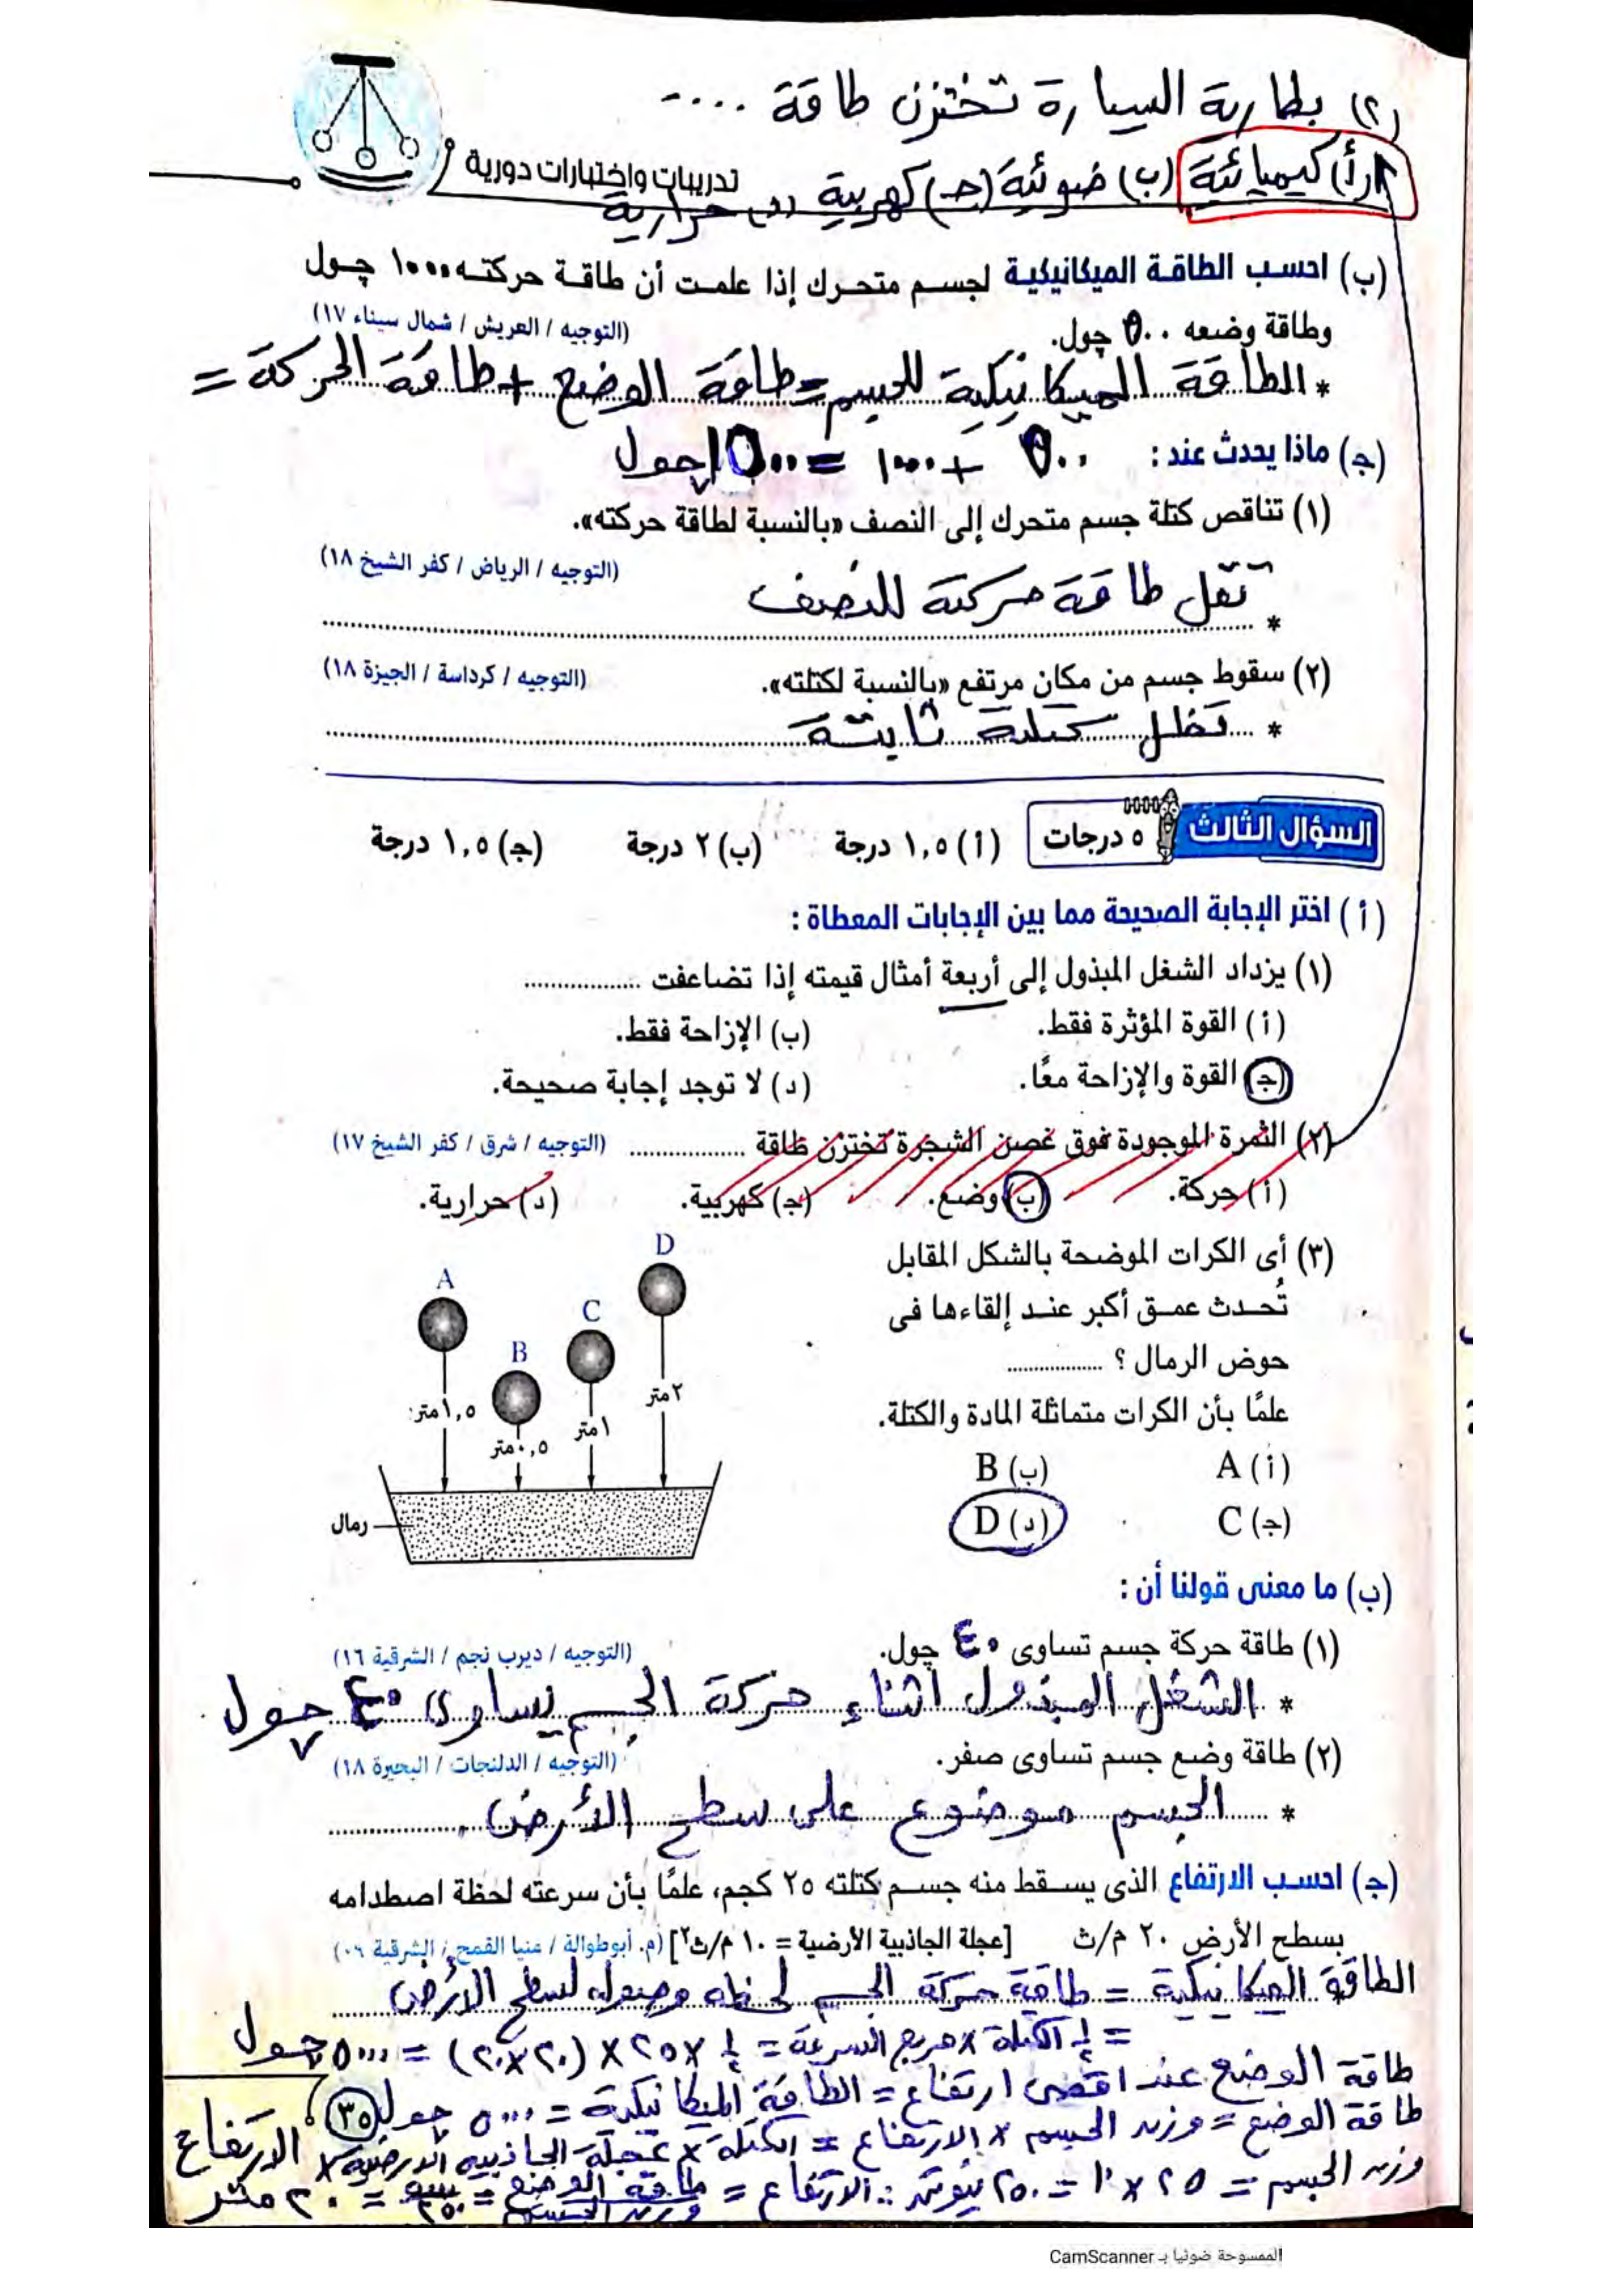 (٢) بطارية السيارة تختزن طاقة ....
(أ) كيميائية (ب) ضوئية (جـ) كهربية (د) حرارية
تدريبات واختبارات دورية
(ب) احسب الطاقة الميكانيكية لجسم متحرك إذا علمت أن طاقة حركته ١٠٠٠ چول
وطاقة وضعه ٥٠٠ چول.
(التوجيه / العريش / شمال سيناء ١٧)
* الطاقة الميكانيكية للجسم = طاقة الوضع + طاقة الحركة =
٥٠٠ + ١٠٠٠ = ١٥٠٠ چول
(جـ) ماذا يحدث عند :
(١) تناقص كتلة جسم متحرك إلى النصف «بالنسبة لطاقة حركته».
(التوجيه / الرياض / كفر الشيخ ١٨)
* تقل طاقة حركته للنصف
(٢) سقوط جسم من مكان مرتفع «بالنسبة لكتلته».
(التوجيه / كرداسة / الجيزة ١٨)
* تظل كتلته ثابتة
السؤال الثالث ٥ درجات (أ) ١,٥ درجة (ب) ٢ درجة (جـ) ١,٥ درجة
(أ) اختر الإجابة الصحيحة مما بين الإجابات المعطاة :
(١) يزداد الشغل المبذول إلى أربعة أمثال قيمته إذا تضاعفت ................
(أ) القوة المؤثرة فقط. (ب) الإزاحة فقط.
(جـ) القوة والإزاحة معًا. (د) لا توجد إجابة صحيحة.
(٢) الثمرة الموجودة فوق غصن الشجرة تختزن طاقة ................ (التوجيه / شرق / كفر الشيخ ١٧)
(أ) حركة. (ب) وضع. (جـ) كهربية. (د) حرارية.
(٣) أى الكرات الموضحة بالشكل المقابل
تُحدث عمق أكبر عند إلقاءها فى
حوض الرمال ؟ ................
علمًا بأن الكرات متماثلة المادة والكتلة.
(أ) A (ب) B
(جـ) C (د) D
A
B
C
D
١,٥ متر
٠,٥ متر
١ متر
٢ متر
رمال
(ب) ما معنى قولنا أن :
(١) طاقة حركة جسم تساوى ٤٠ چول.
(التوجيه / ديرب نجم / الشرقية ١٦)
* الشغل المبذول أثناء حركة الجسم يساوى ٤٠ چول
(٢) طاقة وضع جسم تساوى صفر.
(التوجيه / الدلنجات / البحيرة ١٨)
* الجسم موضوع على سطح الأرض.
(جـ) احسب الارتفاع الذى يسقط منه جسم كتلته ٢٥ كجم، علمًا بأن سرعته لحظة اصطدامه
بسطح الأرض ٢٠ م/ث [عجلة الجاذبية الأرضية = ١٠ م/ث٢] (م. أبوطوالة / منيا القمح / الشرقية ٠٩)
* الطاقة الميكانيكية = طاقة حركة الجسم لحظة وصوله لسطح الأرض
= ½ الكتلة × مربع السرعة = ½ × ٢٥ × (٢٠×٢٠) = ٥٠٠٠ چول
طاقة الوضع عند اقصى ارتفاع = الطاقة الميكانيكية = ٥٠٠٠ چول
٣٥
طاقة الوضع = وزن الجسم × الارتفاع = الكتلة × عجلة الجاذبية الارضية × الارتفاع
وزن الجسم = ٢٥ × ١٠ = ٢٥٠ نيوتن ∴ الارتفاع = طاقة الوضع / وزن الجسم = ٥٠٠٠ / ٢٥٠ = ٢٠ متر
الممسوحة ضوئيا بـ CamScanner